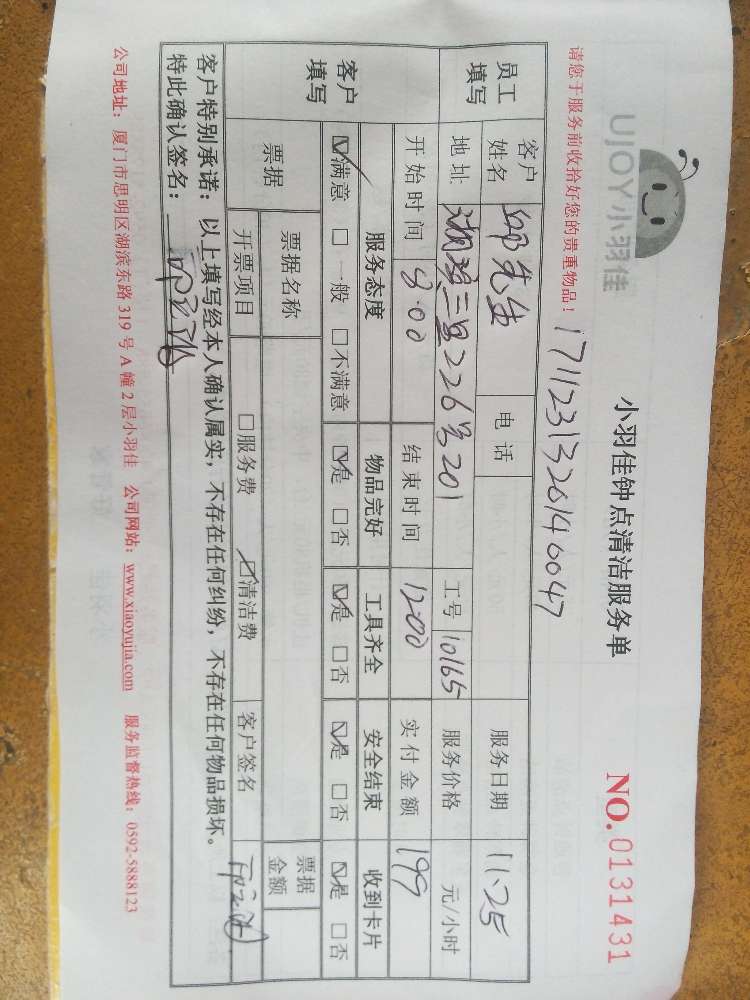 UJOY小羽佳
小羽佳钟点清洁服务单
NO.0131431
请您于服务前收拾好您的贵重物品！
171123132614 0047
员工填写
客户姓名 先生 电话 服务日期 11.25
地址 226号201 工号 10165 服务价格 元/小时
开始时间 8:00 结束时间 12:00 实付金额 199
客户填写
服务态度 物品完好 工具齐全 安全结束 收到卡片
☑满意 □一般 □不满意 ☑是 □否 ☑是 □否 ☑是 □否 ☑是 □否
票据 票据名称 票据金额
开票项目 □服务费 ☑清洁费 客户签名
客户特别承诺：以上填写经本人确认属实，不存在任何纠纷，不存在任何物品损坏。
特此确认签名：
公司地址：厦门市思明区湖滨东路 319 号 A 幢 2 层小羽佳 公司网站：www.xiaoyujia.com 服务监督热线：0592-5888123